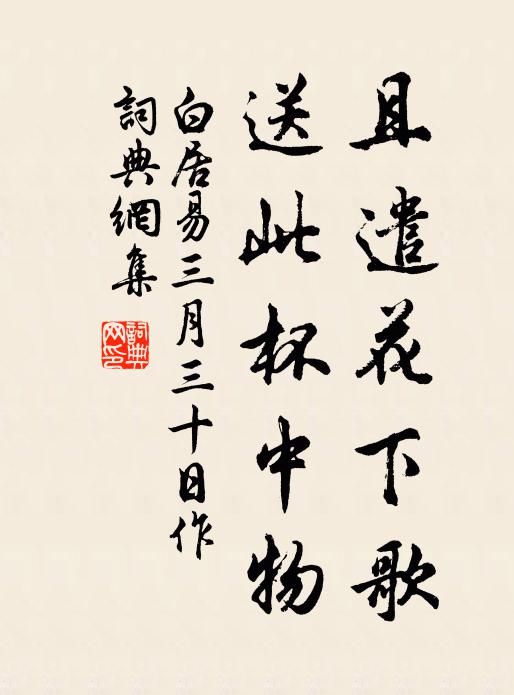 且遣花下歌
送此杯中物
白居易三月三十日作
詞典網集
詞典網印